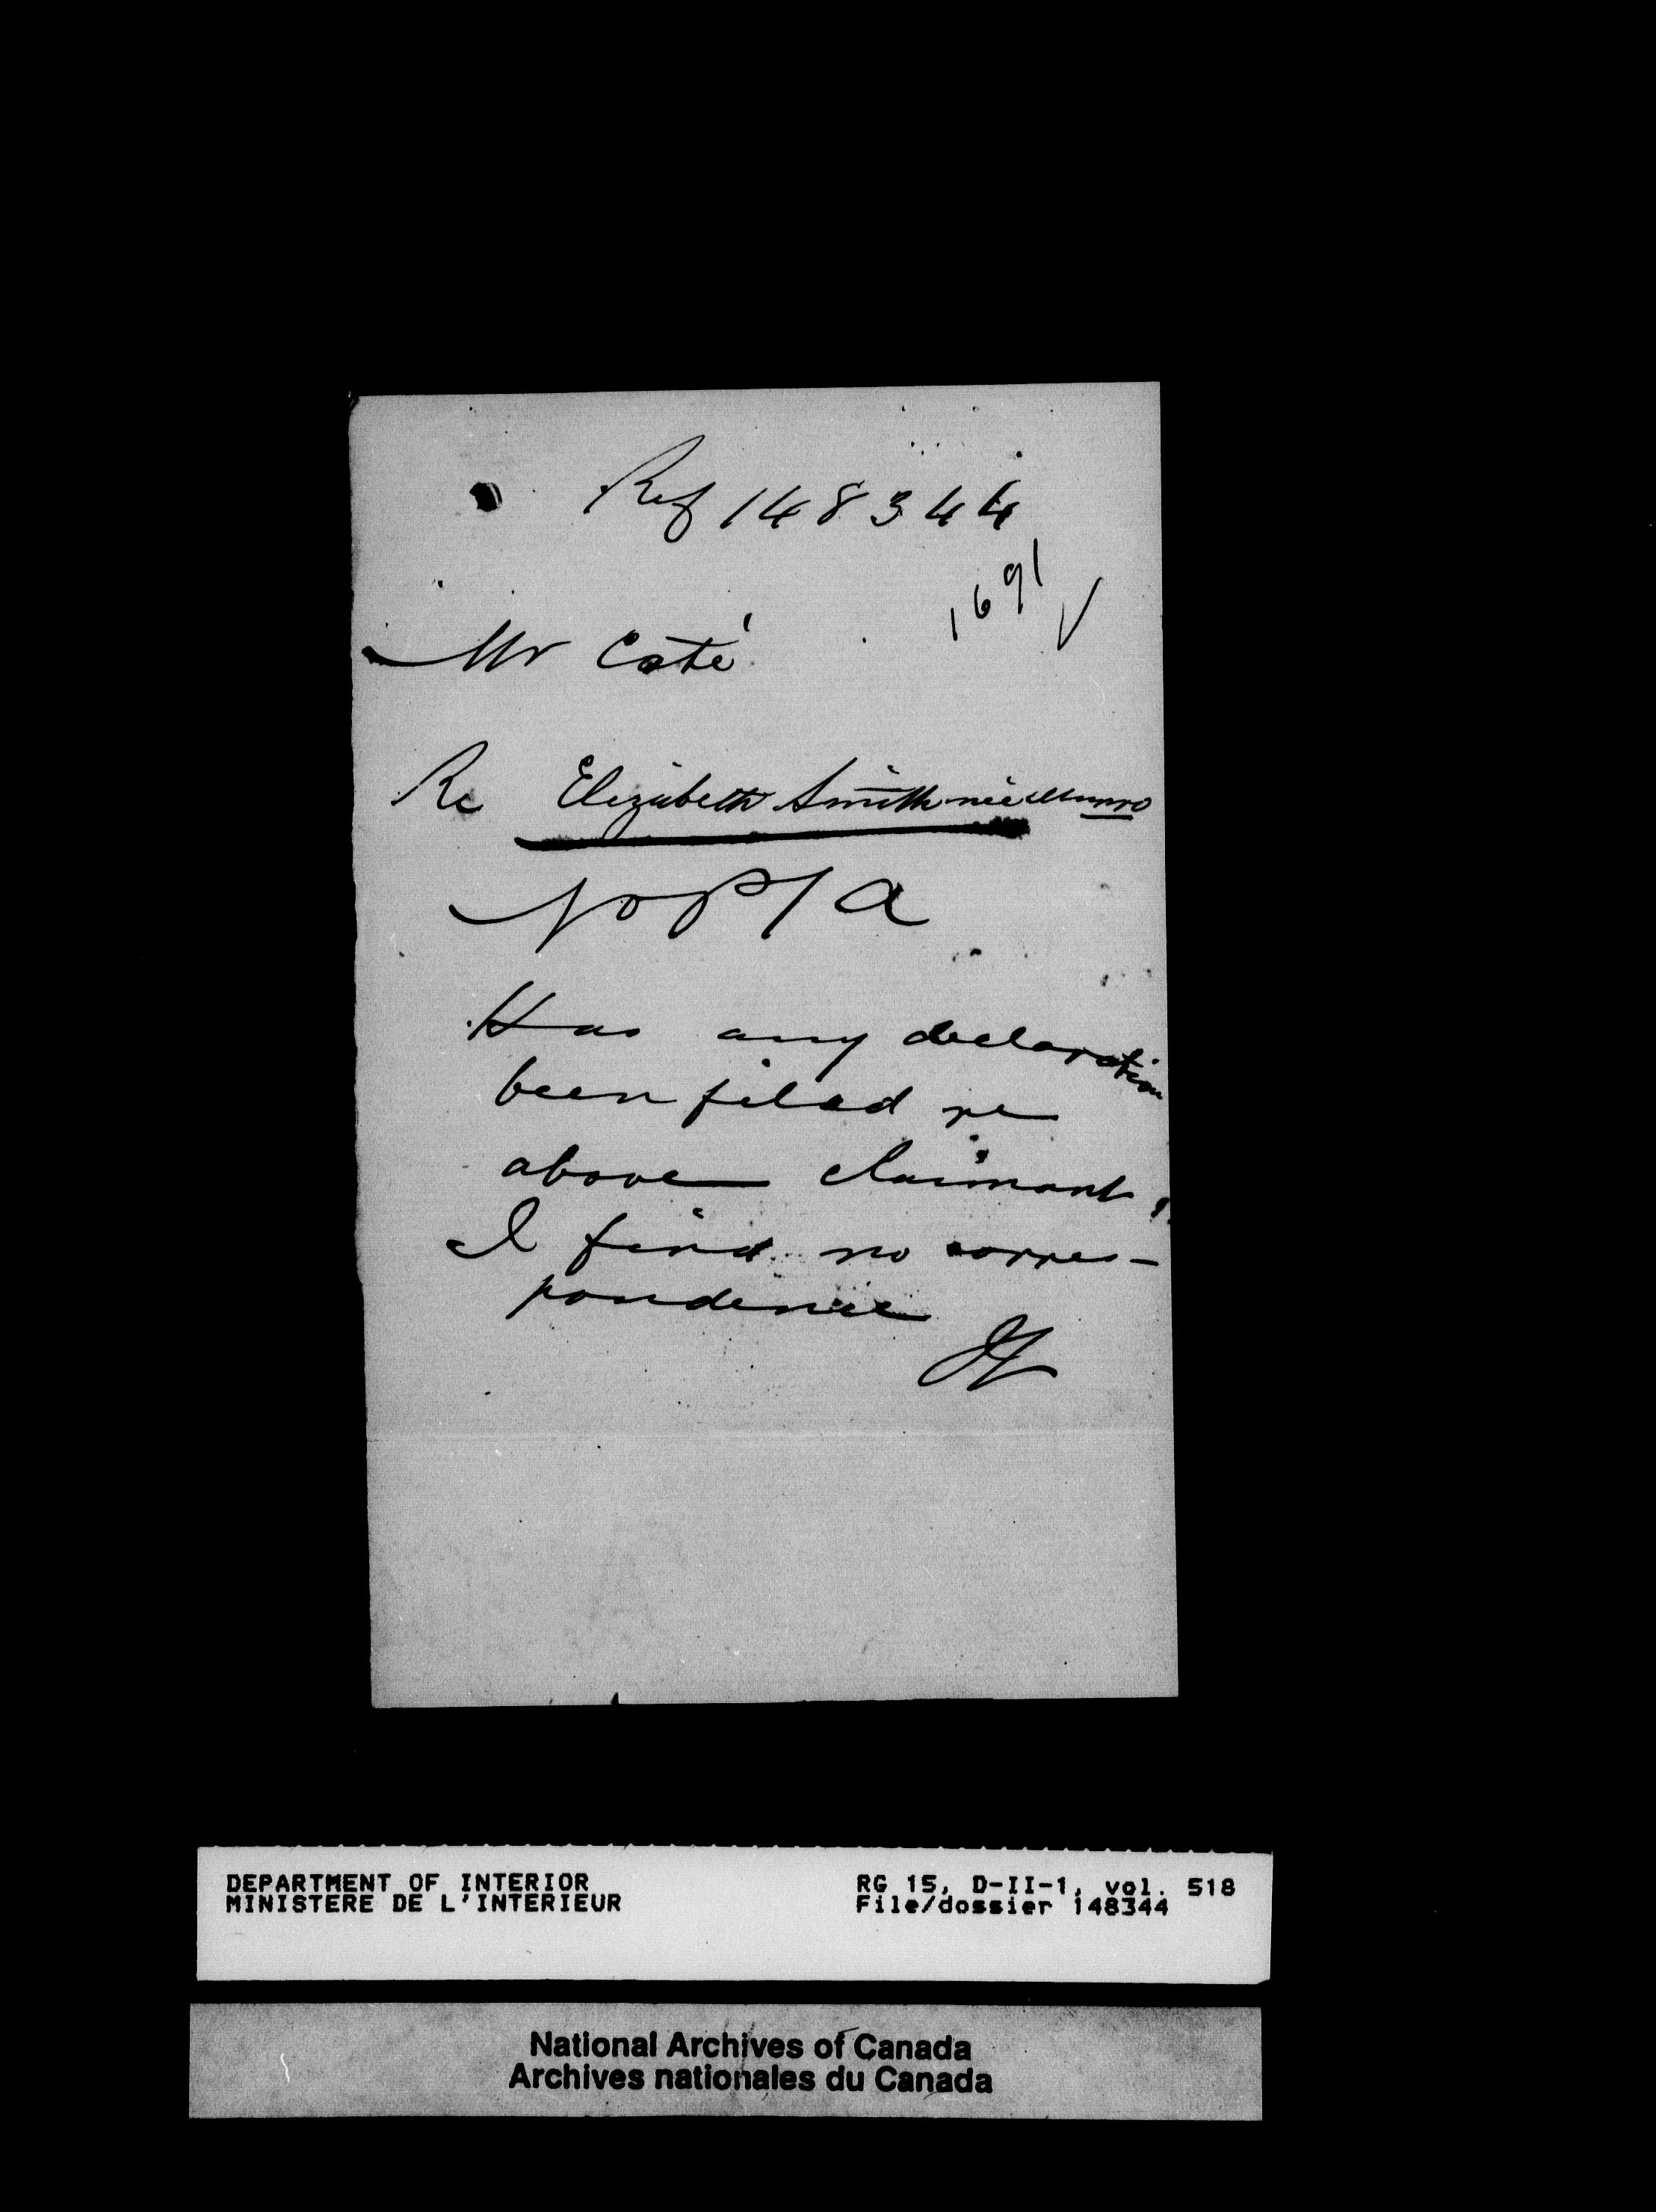 Ref 148344
1691
Mr Coté
Re Elizabeth Smith née Munro
No P/A
Has any declaration
been filed re
above claimant?
I find no corres-
pondence
DEPARTMENT OF INTERIOR RG 15, D-II-1, vol. 518
MINISTERE DE L'INTERIEUR File/dossier 148344
National Archives of Canada
Archives nationales du Canada